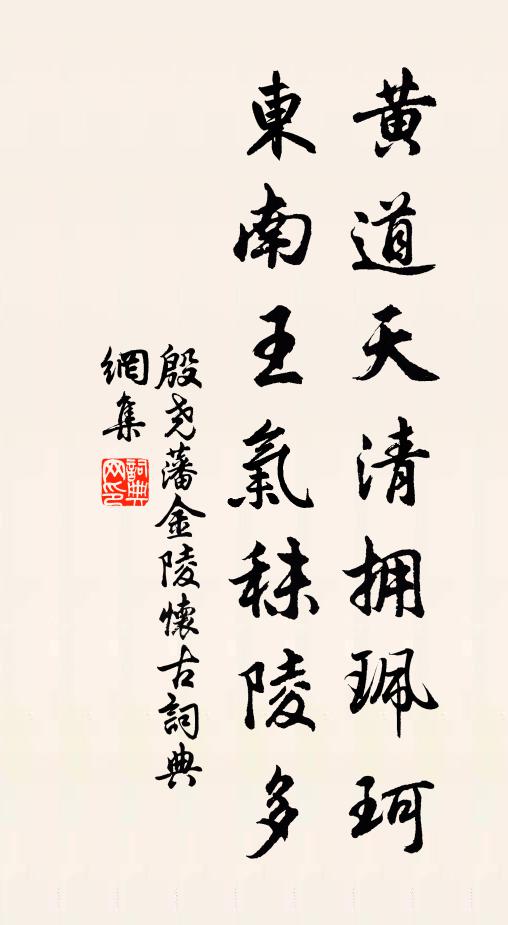 黄道天清拥珮珂
東南王氣秣陵多
殷尧藩金陵懷古詞典
網集
詞典網印